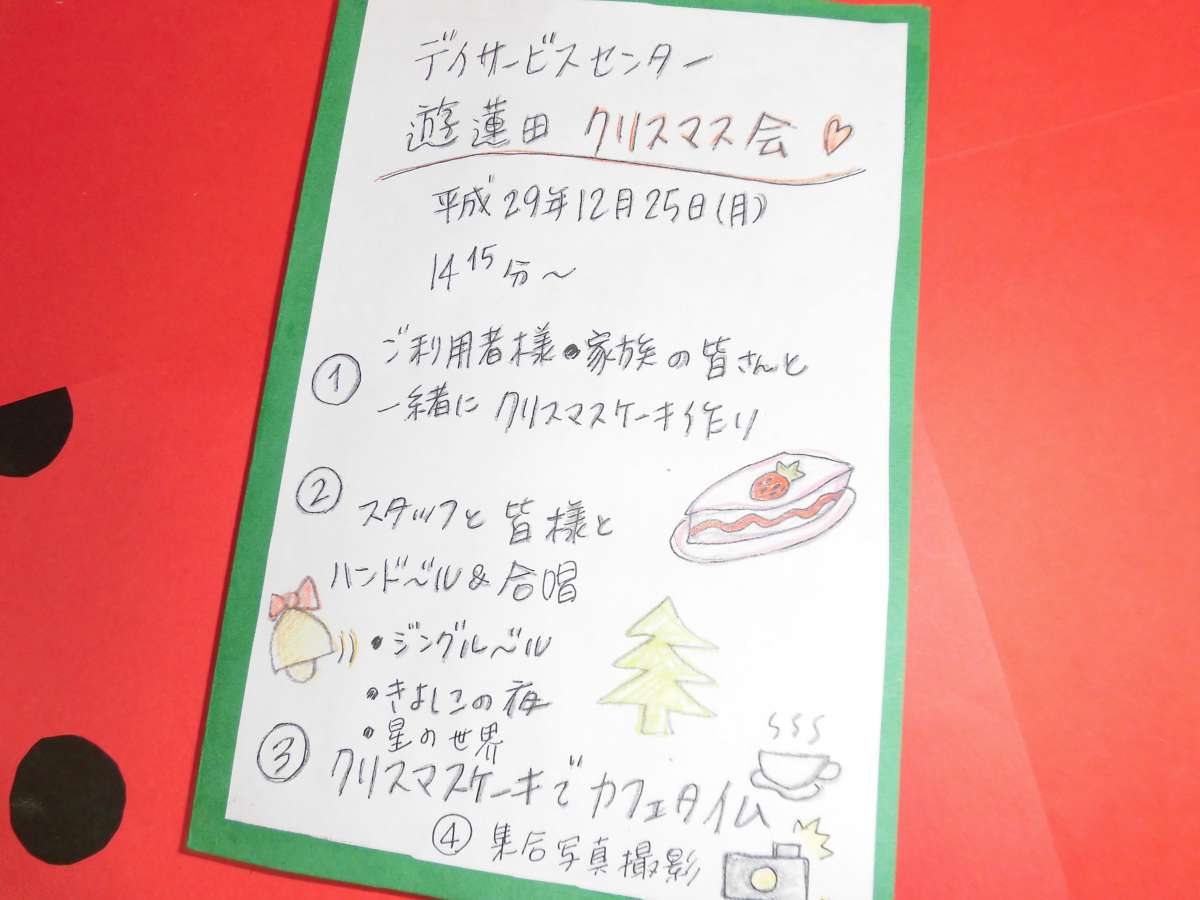 デイサービスセンター
遊蓮田 クリスマス会♡
平成29年12月25日(月)
14 15分〜
① ご利用者様・家族の皆さんと
一緒に クリスマスケーキ作り
② スタッフと皆様と
ハンドベル&合唱
・ジングルベル
・きよしこの夜
・星の世界
③ クリスマスケーキでカフェタイム
④ 集合写真撮影